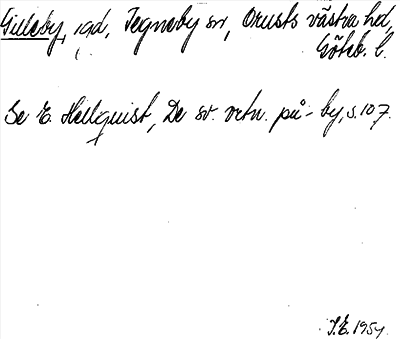 Gulleby, igd, Tegneby sn, Orusts västra hd,
Göteb. l.
Se E. Hellquist, De sv. ortn. på -by, s. 107.
J.E. 1954.